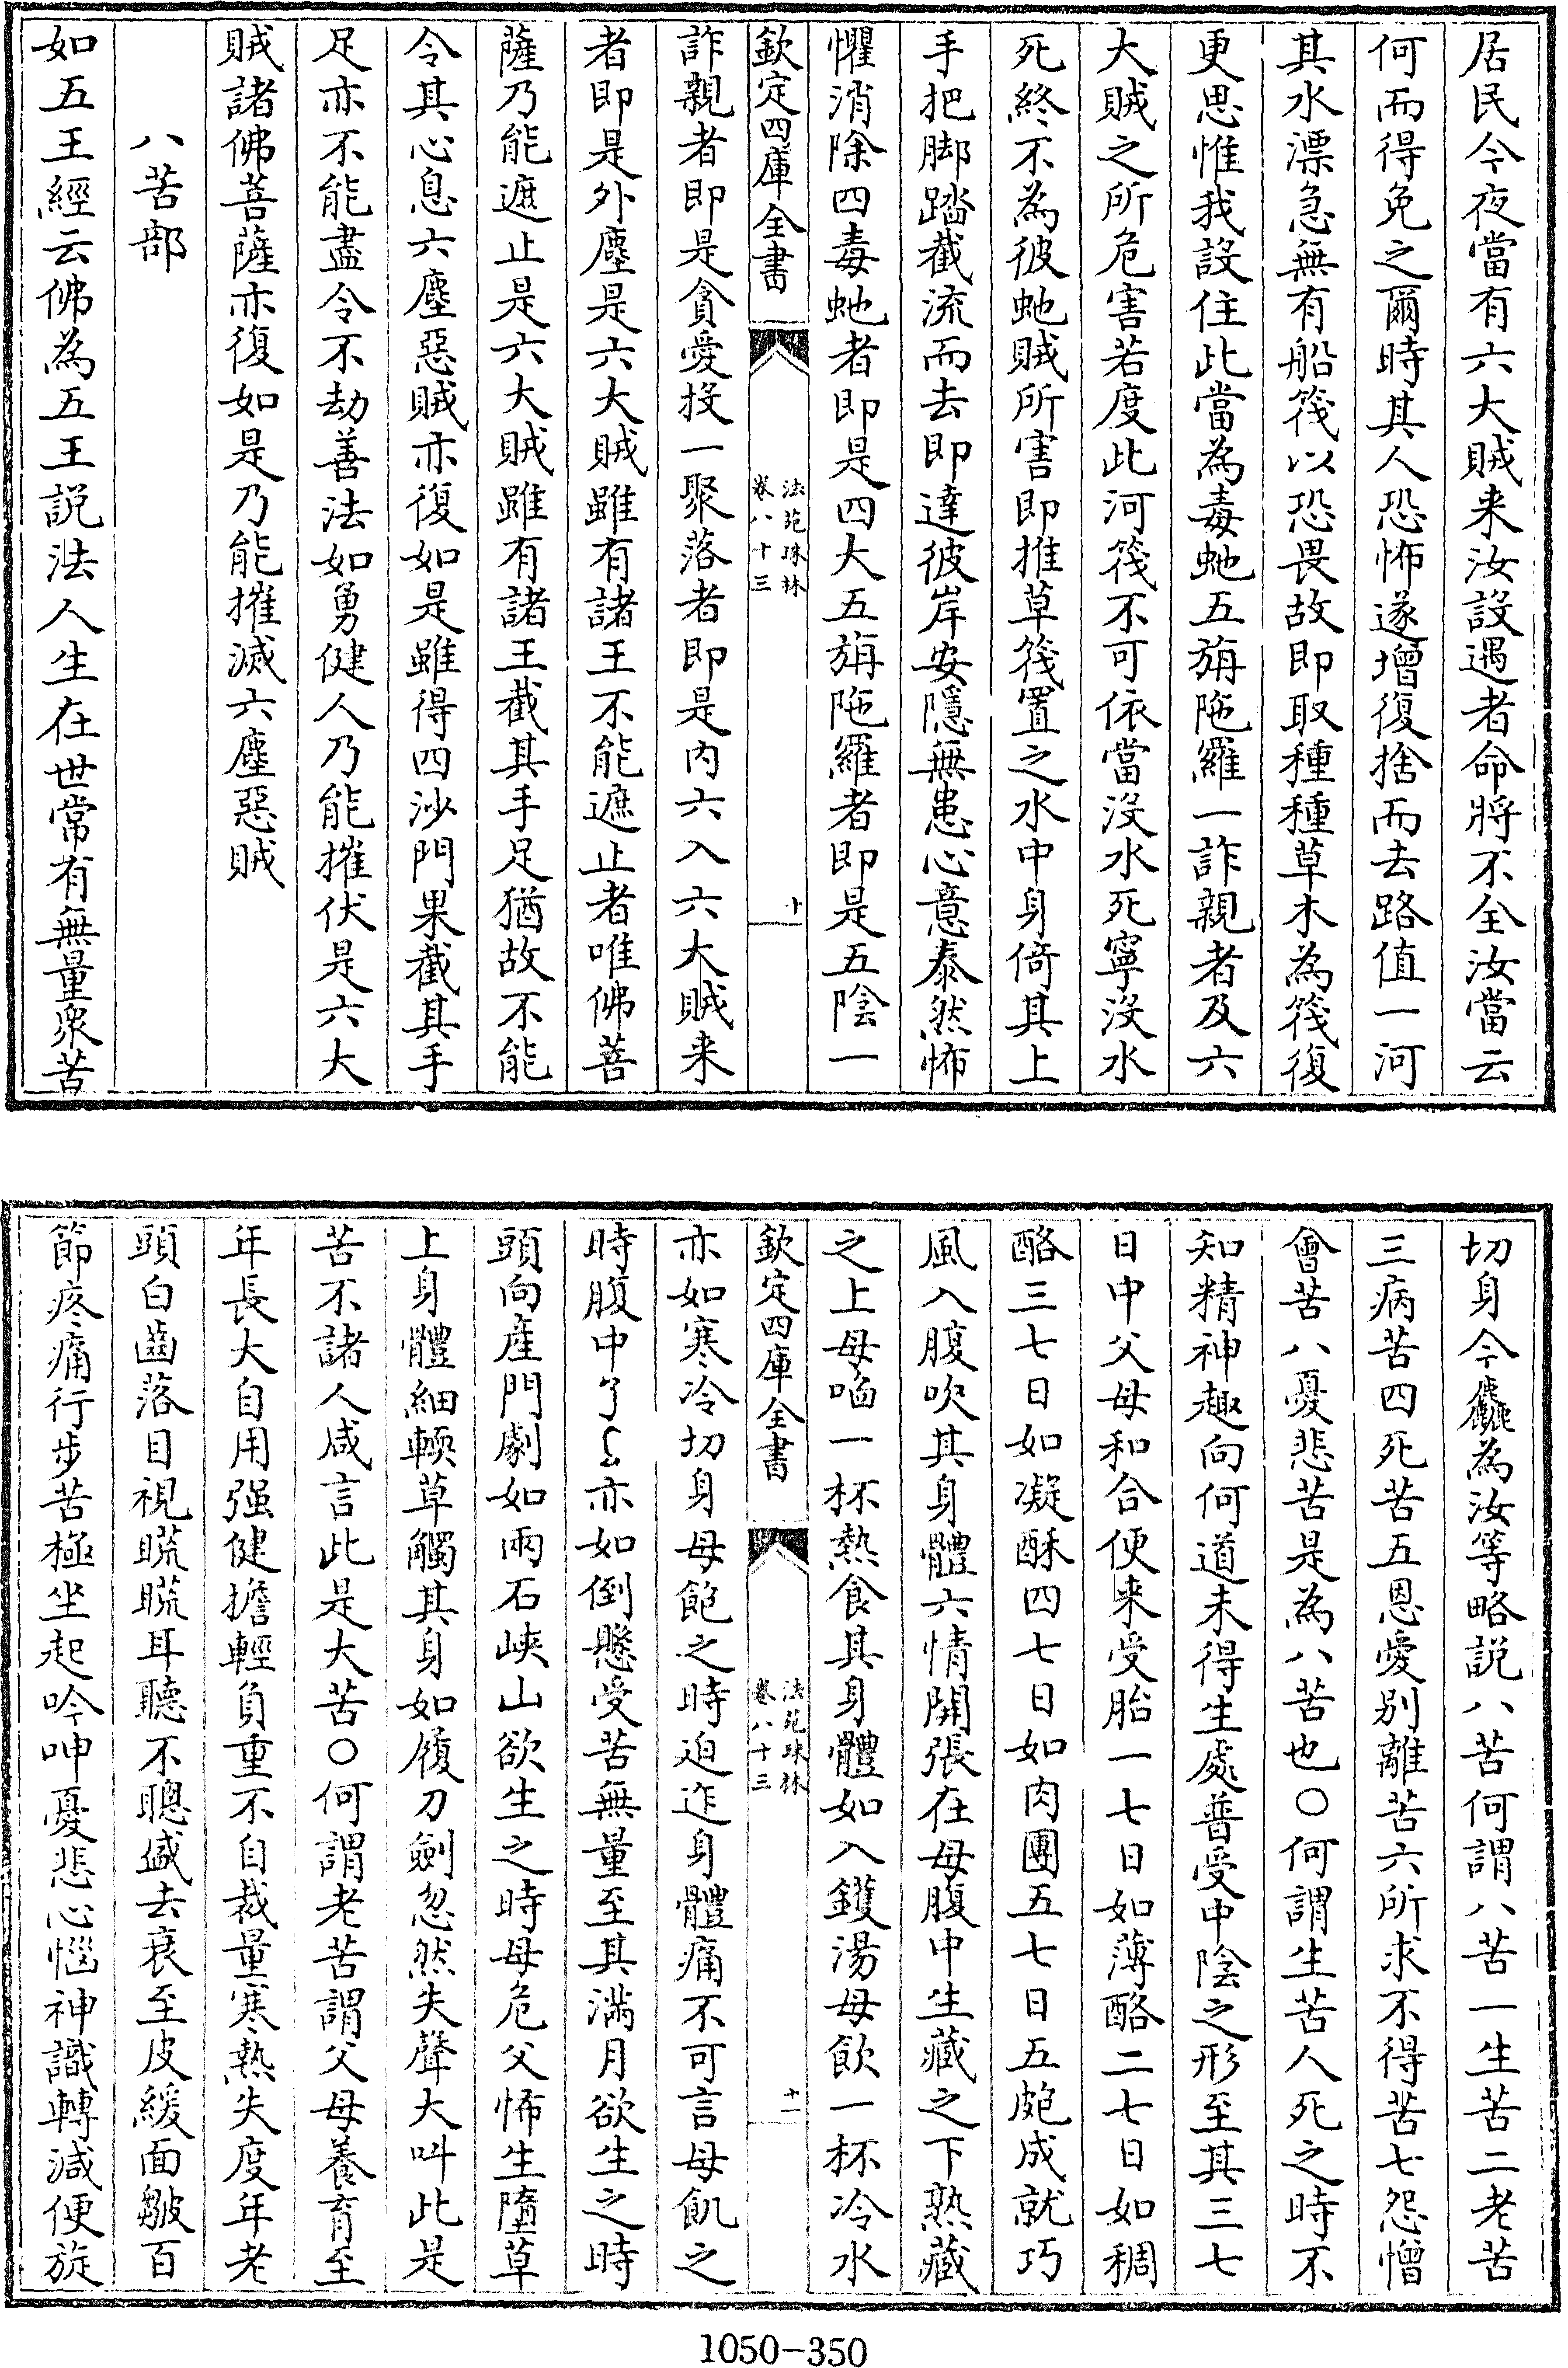 居民今夜當有六大賊来汝設遇者命將不全汝當云
何而得免之爾時其人恐怖遂增復捨而去路值一河
其水漂急無有船筏以恐畏故即取種種草木為筏復
更思惟我設住此當為毒虵五旃陁羅一詐親者及六
大賊之所危害若度此河筏不可依當沒水死寧沒水
死終不為彼虵賊所害即推草筏置之水中身倚其上
手把脚踏截流而去即達彼岸安隱無患心意泰然怖
懼消除四毒虵者即是四大五旃陁羅者即是五陰一
欽定四庫全書
法苑珠林
卷八十三
十
詐親者即是貪愛投一聚落者即是内六入六大賊来
者即是外塵是六大賊雖有諸王不能遮止者唯佛菩
薩乃能遮止是六大賊雖有諸王截其手足猶故不能
令其心息六塵惡賊亦復如是雖得四沙門果截其手
足亦不能盡令不劫善法如勇健人乃能摧伏是六大
賊諸佛菩薩亦復如是乃能摧滅六塵惡賊
八苦部
如五王經云佛為五王説法人生在世常有無量衆苦
切身今麤為汝等略説八苦何謂八苦一生苦二老苦
三病苦四死苦五恩愛别離苦六所求不得苦七怨憎
會苦八憂悲苦是為八苦也〇何謂生苦人死之時不
知精神趣向何道未得生處普受中陰之形至其三七
日中父母和合便来受胎一七日如薄酪二七日如稠
酪三七日如凝酥四七日如肉團五七日五皰成就巧
風入腹吹其身體六情開張在母腹中生藏之下熟藏
之上母㗖一杯熱食其身體如入鑊湯母飲一杯冷水
欽定四庫全書
法苑珠林
卷八十三
十一
亦如寒冷切身母飽之時迫迮身體痛不可言母飢之
時腹中了了亦如倒懸受苦無量至其滿月欲生之時
頭向產門劇如兩石峽山欲生之時母危父怖生墮草
上身體細輭草觸其身如履刀劍忽然失聲大叫此是
苦不諸人咸言此是大苦〇何謂老苦謂父母養育至
年長大自用强健擔輕負重不自裁量寒熱失度年老
頭白齒落目視䀮䀮耳聽不聰盛去衰至皮緩面皺百
節疼痛行步苦極坐起吟呻憂悲心惱神識轉減便旋
1050-350